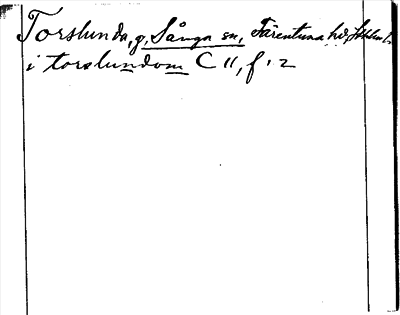 Torslunda, g, Sånga sn, Färentuna hd, Sthlms l.
i torslundom C 11, f. 12